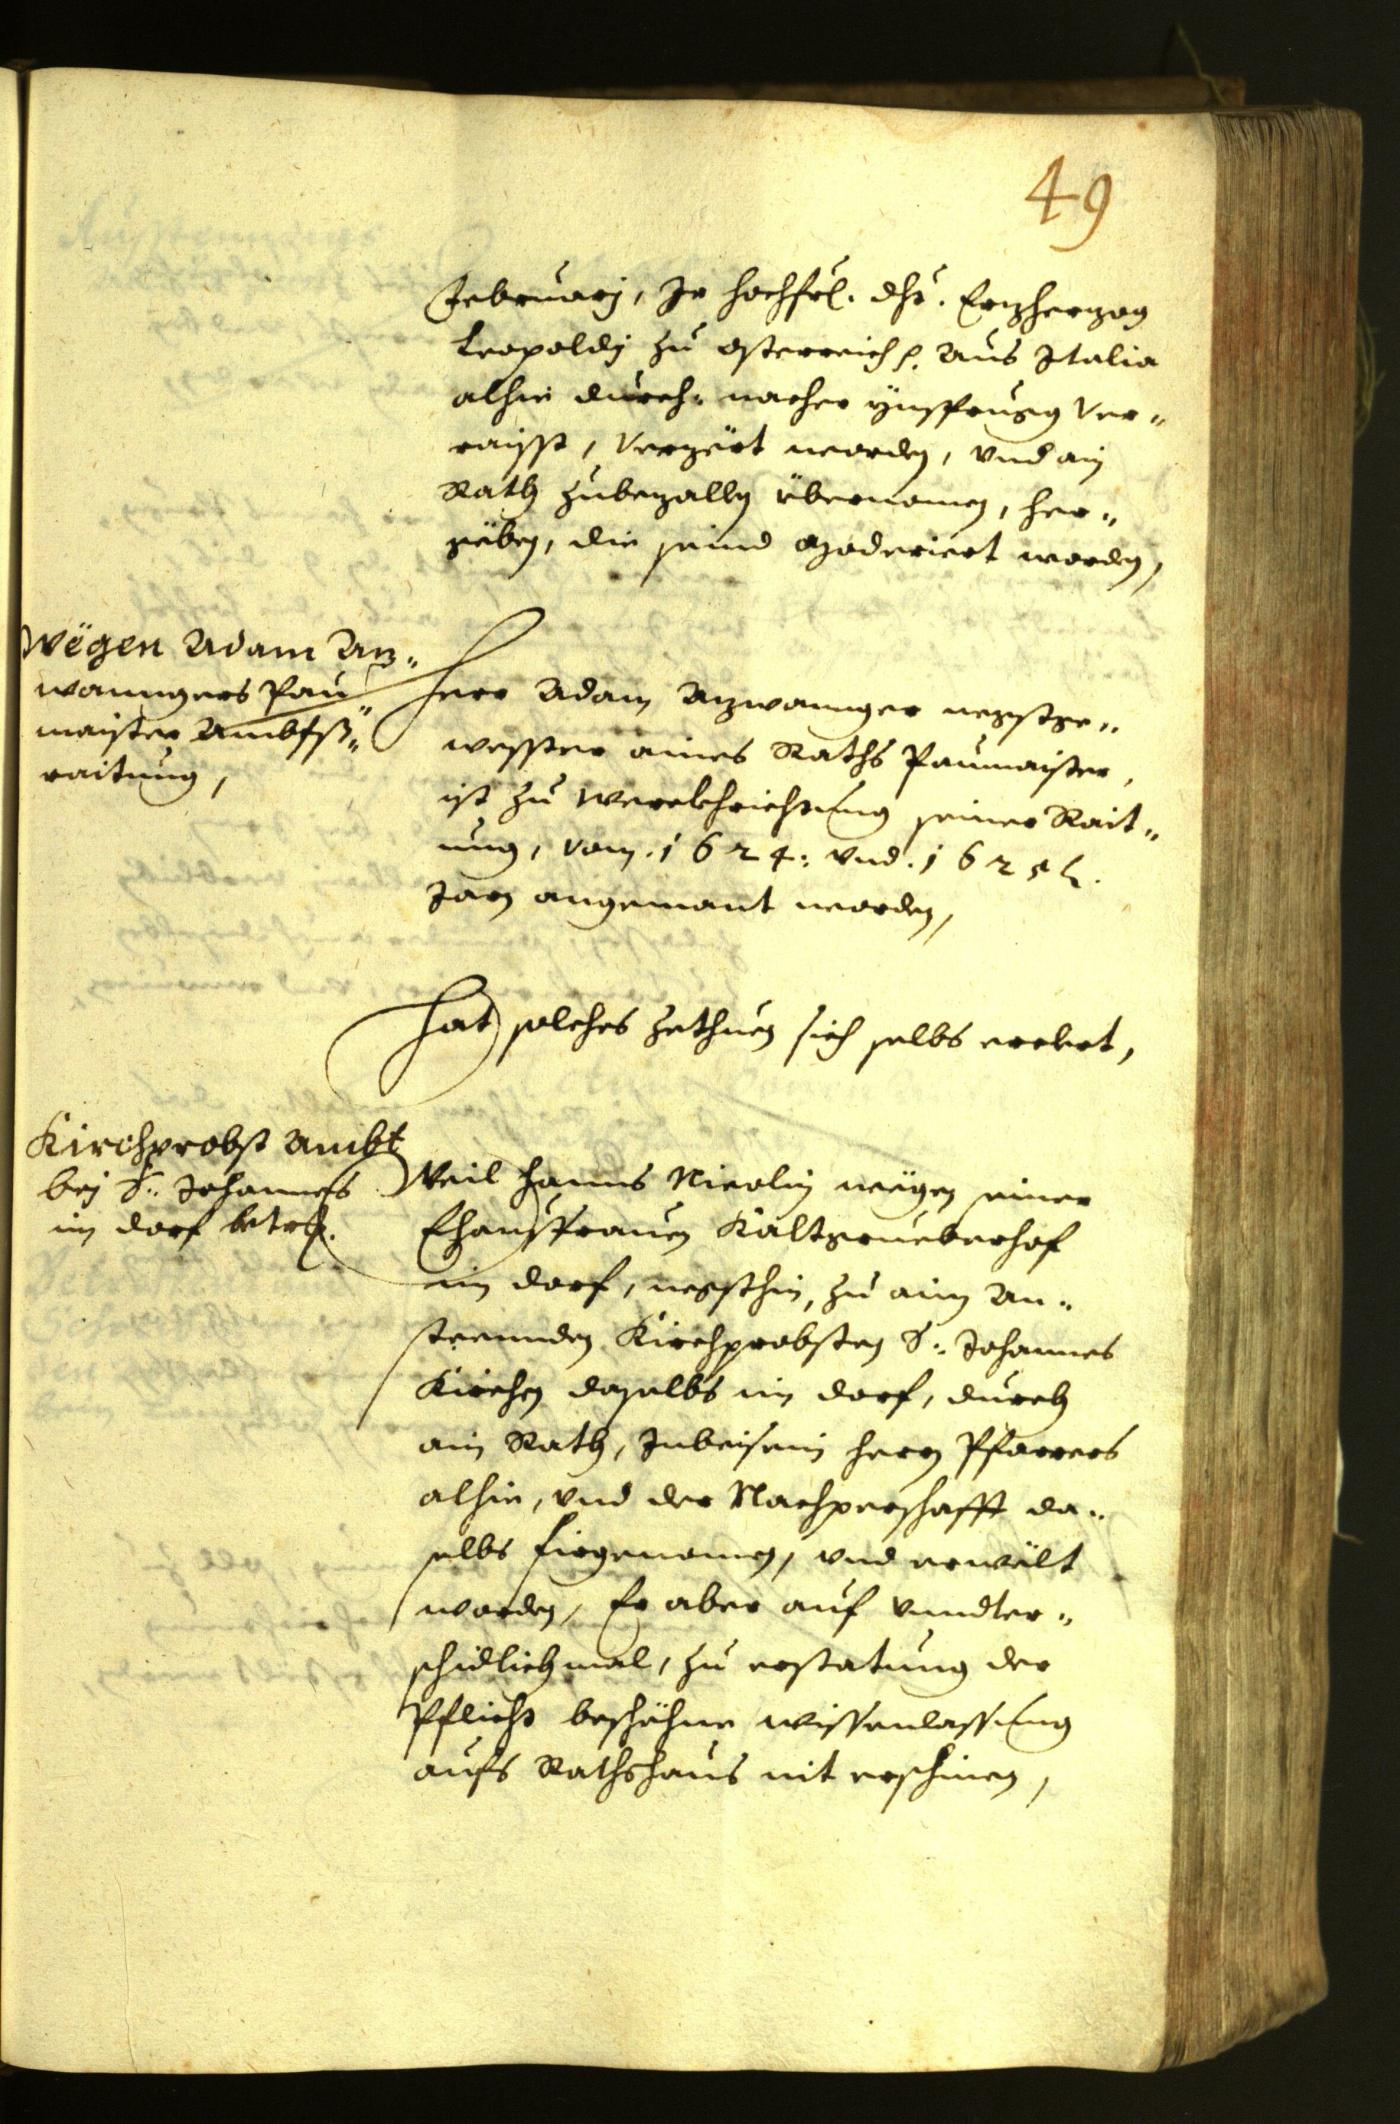 49
Februarj, Ir hochfrl. dht. Erzherzog
Leopoldn zu Osterreich etc. aus Italia
alhie durch nacher Ynsprugg ver„
raisst, verzört worden, vnd ain
Rath zubezalln übernomen, her„
geben, die seind moderiert worden,
Wëgen Adam Az„
wanngers Pau„
maister Ambts„
raitung,
Herr Adam Azwannger negstge„
wesster aines Raths Paumaister,
ist zu Werckhrichtung seiner Rait„
ung, vom .1624: vnd .1625 t.
Jarn angemant worden,
Hat solches zethuen sich selbs erbert,
Kirchprobst Ambt
bej S: Johannes
im dorf betr.
Weil Hanns Nicolin wëgen seiner
Ehausfrauen Kaltgrueberhof
im dorf, negsthin, zu aim An„
steenden Kirchprobsten S: Johannes
Kirchen daselbs im dorf, durch
ain Rath, Inbeisein herrn Pfarrers
alhie, vnd der Nachperschafft da„
selbs firgenomen, vnd erwält
worden, Er aber auf vnndter„
schidlich mal, zu erstatung der
Pflicht beschëhne wissenlassung
aufs Rathshaus nit erschinen,